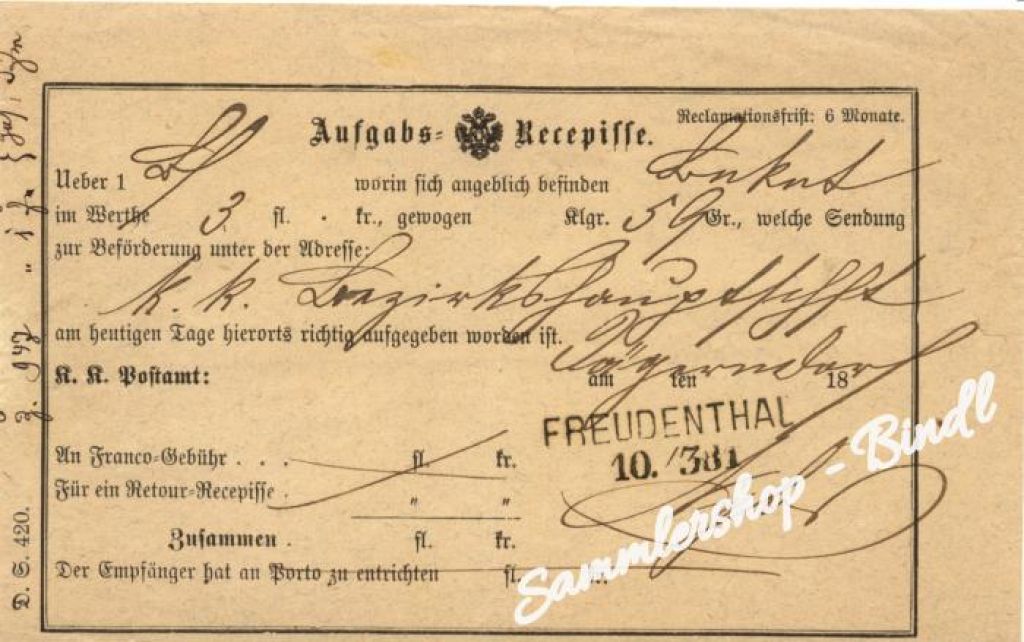 Aufgabs- Recepisse.
Reclamationsfrist: 6 Monate.
Ueber 1 worin sich angeblich befinden
im Werthe 3 fl. · kr., gewogen Klgr. 59 Gr., welche Sendung
zur Beförderung unter der Adresse:
k. k. Bezirkshauptschft
am heutigen Tage hierorts richtig aufgegeben worden ist.
Jägerndorf
K. K. Postamt: am ten 18
FREUDENTHAL
10./381
An Franco-Gebühr . . . fl. kr.
Für ein Retour-Recepisse . " "
Zusammen . fl. kr.
Der Empfänger hat an Porto zu entrichten fl.
D. S. 420.
Sammlershop - Bindl